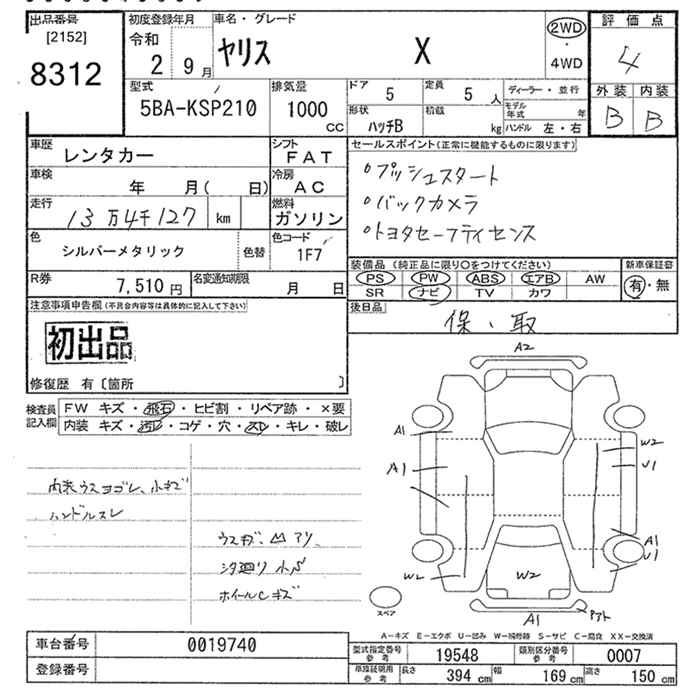 出品番号
[2152]
8312
初度登録年月
令和
2 9月
車名・グレード
ヤリス X
2WD
・
4WD
評価点
4
外装 内装
B B
型式
5BA-KSP210
排気量
1000
CC
ドア
5
定員
5 人
形状
ハッチB
積載
kg
ディーラー・並行
モデル年式 年
ハンドル 左・右
車歴
レンタカー
シフト
FAT
車検
年 月( 日)
冷房
AC
走行
13万4千127 km
燃料
ガソリン
色
シルバーメタリック
色替
色コード
1F7
R券
7,510円
名変通知期限
月 日
セールスポイント(正常に機能するものに限ります)
・プッシュスタート
・バックカメラ
・トヨタセーフティセンス
装備品(純正品に限り○をつけてください)
PS PW ABS エアB AW
SR ナビ TV カワ
新車保証書
有・無
後日品
保・取
注意事項申告欄(不具合内容等は具体的に記入して下さい)
初出品
修復歴 有〔箇所 〕
検査員記入欄
FW キズ・飛石・ヒビ割・リペア跡・×要
内装 キズ・汚レ・コゲ・穴・スレ・キレ・破レ
内装ウスヨゴレ、小キズ
ハンドルスレ
ウスキズ、凹アリ、
シタ廻リ小サビ
ホイールCキズ
A2
A1
A1
W2
U1
A1
U1
W2
W2
A1
スペア
A-キズ E-エクボ U-凹み W-補修跡 S-サビ C-腐食 XX-交換済
車台番号
0019740
登録番号
型式指定番号
参考
19548
類別区分番号
参考
0007
車庫証明用
参考
長さ
394 cm
幅
169 cm
高さ
150 cm